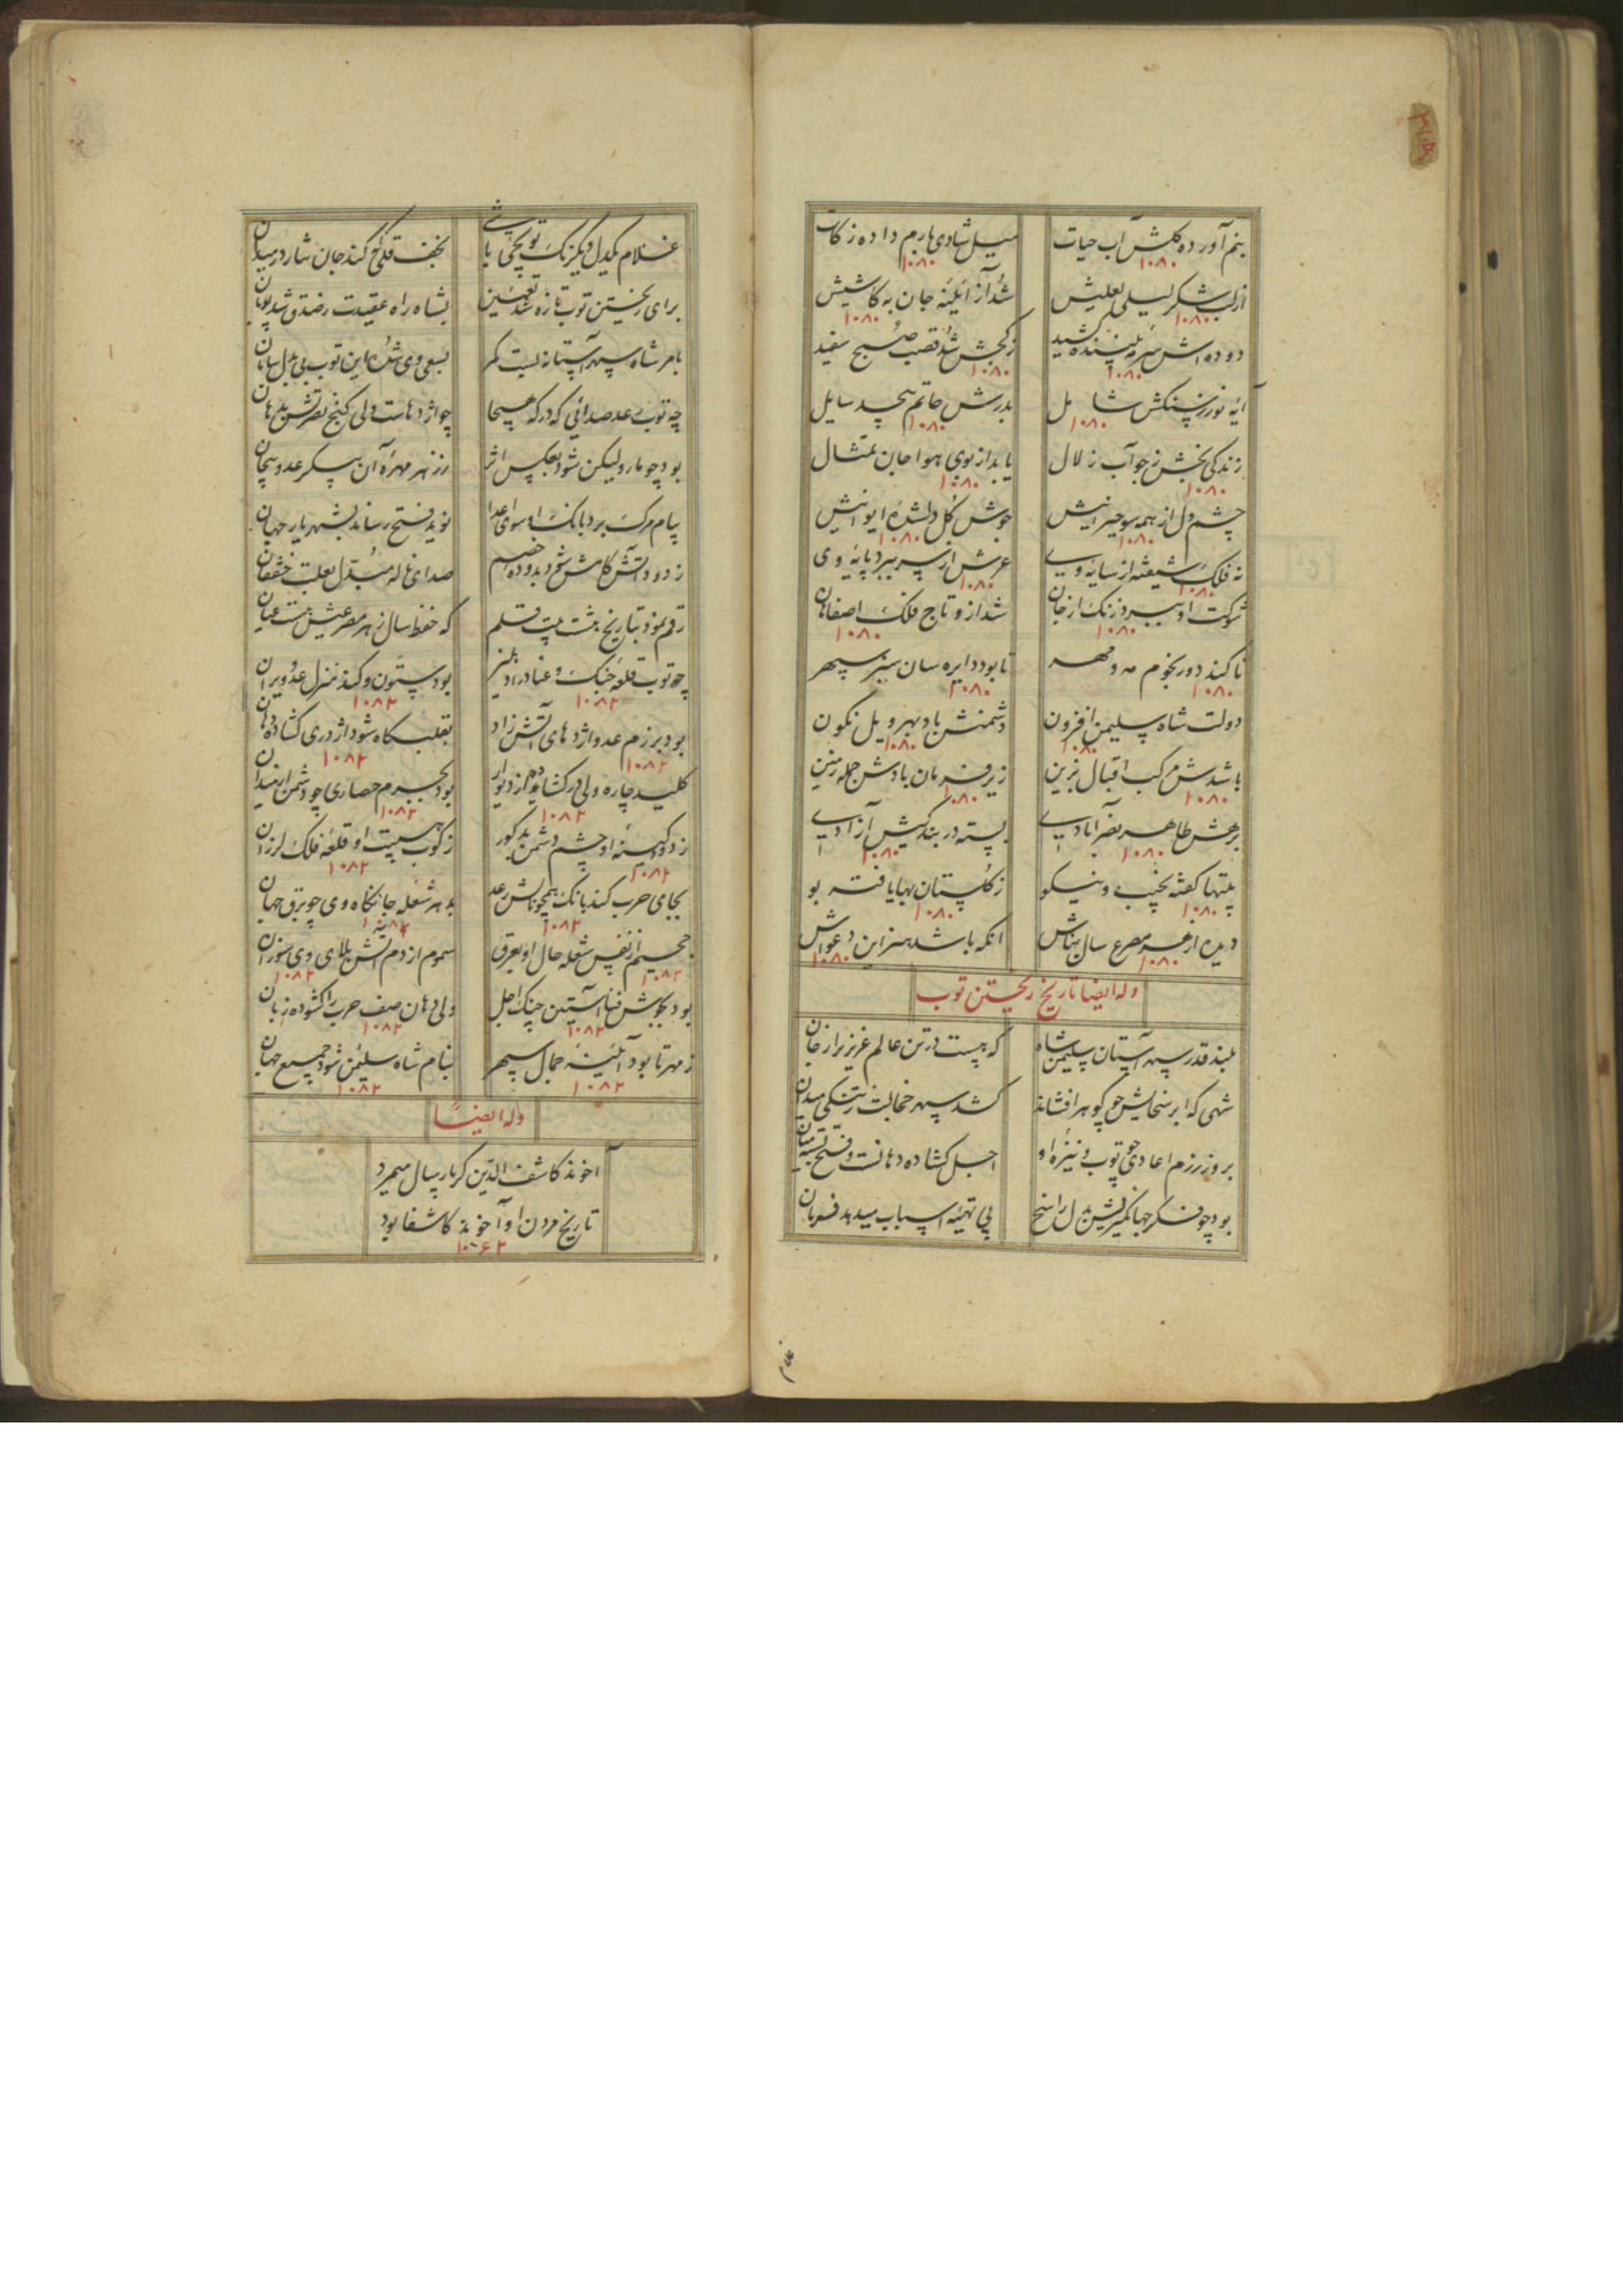 بنم آورده کلش آب حیات
میل شادی بارم داده زکات
۱۰۸۰ ۱۰۸۰
از لب شکر لیلی لعلیش
شد آز آئینه جان به کاشیش
۱۰۸۰ ۱۰۸۰
دوده اش سرمه بیننده کشید
زکجش شد قصب صبح سفید
۱۰۸۰ ۱۰۸۰
آیه نور ز سنکش شامل
بدرش حاتم بیحد سایل
۱۰۸۰ ۱۰۸۰
زندکی بخش ز جو آب زلال
یابد از بوی هوا جان تمثال
۱۰۸۰ ۱۰۸۰
چشم دل از همه سو حیرانیش
جوش کل دلشده ایوانیش
۱۰۸۰ ۱۰۸۰
نه فلک شیفته از سایه وی
عرش از سر ببرد پایه وی
۱۰۸۰ ۱۰۸۰
شوکت او ببرد زنک از جان
شد از و تاج فلک اصفاهان
۱۰۸۰ ۱۰۸۰
تا کند دور بخوم مه و مهر
تا بود دایره سان سیر سپهر
۱۰۸۰ ۱۰۸۰
دولت شاه سلیمن افزون
دشمنش باد بهر و یل نکون
۱۰۸۰ ۱۰۸۰
باشدش مرکب اقبال بزین
زیر فرمان بادش جمله زمین
۱۰۸۰ ۱۰۸۰
برهش طاهر نصرآبادی
بسته در بندکیش آزادی
۱۰۸۰ ۱۰۸۰
بیتها کفته نجیب و نیکو
زکلستان بها یافته بو
۱۰۸۰ ۱۰۸۰
دیده از هر مصرع سال بناش
آنکه باشد هنر این دعواش
۱۰۸۰ ۱۰۸۰
وله ایضا تاریخ ریختن توب
بلند قدر سپهر آستان سلیمن شاه
که هست در تن عالم عزیزتر از جان
شهی که ابر سخایش چو کوهر افشاند
کشد سپهر خجالت ز تنکی میدان
بروز رزم اعادی چو توب و نیزه او
اجل کشاده دهانست و فتح بسته میان
بود چو فکر جهانکیریش بدل راسخ
پی تهیه اسباب میدهد فرمان
غلام یکدل و یکرنک توبچی باشی
نجف قلی که کند جان نثار در میدان
برای ریختن توب تازه شد تعیین
بشاه راه عقیدت ز صدق شد پویان
بامر شاه سپهر آستانه بست کمر
بسعی وی شده این توب بی بدل سامان
چه توب رعد صدائی که در که هیجا
چو اژدهاست ولی کنج نصرتش بدهان
بود چو مار ولیکن شود بعکس اثر
ز زهر مهره آن پیکر عدو بیجان
پیام مرک برد بانک او سوی اعدا
نوید فتح رساند بشهریار جهان
ز دود آتش کامش شود بدوده خصم
صدای ناله مبدل بعلت خفقان
رقم نمود بتاریخ بیست بیت قلم
که حفظ سال ز هر مصرعیش هست عیان
چو توب قلعه جنک و عناد را دهلیز
بود ستون و کند منزل عدو ویران
۱۰۸۲ ۱۰۸۲
بود برزم عدو اژدهای آتش زاد
بقلبکاه شود اژدری کشاده دهان
۱۰۸۲ ۱۰۸۲
کلید چاره ولی در کشاده از دیوار
۱۰۸۲ ۱۰۸۲
ز دود کینه او چشم دشمن بد کور
ز کوب هیبت او قلعه فلک لرزان
۱۰۸۲ ۱۰۸۲
بجای حرب کند بانک همچو تابش رعد
بد هر شعله جانکاه وی چو برق جهان
۱۰۸۲ ۱۰۸۲
جحیم از نفس شعله حال او بعرق
سموم از دم آتش بلای وی سوزان
۱۰۸۲ ۱۰۸۲
ولی دهان صف حرب را کشوده زبان
۱۰۸۲ ۱۰۸۲
ز مهر تا بود آئینه جمال سپهر
بنام شاه سلیمن شود جمیع جهان
۱۰۸۲ ۱۰۸۲
وله ایضاً
آخوند کاشف الدین کز بار سال میمرد
تاریخ مردن او آخوند کاشفا بود
۱۰۶۲